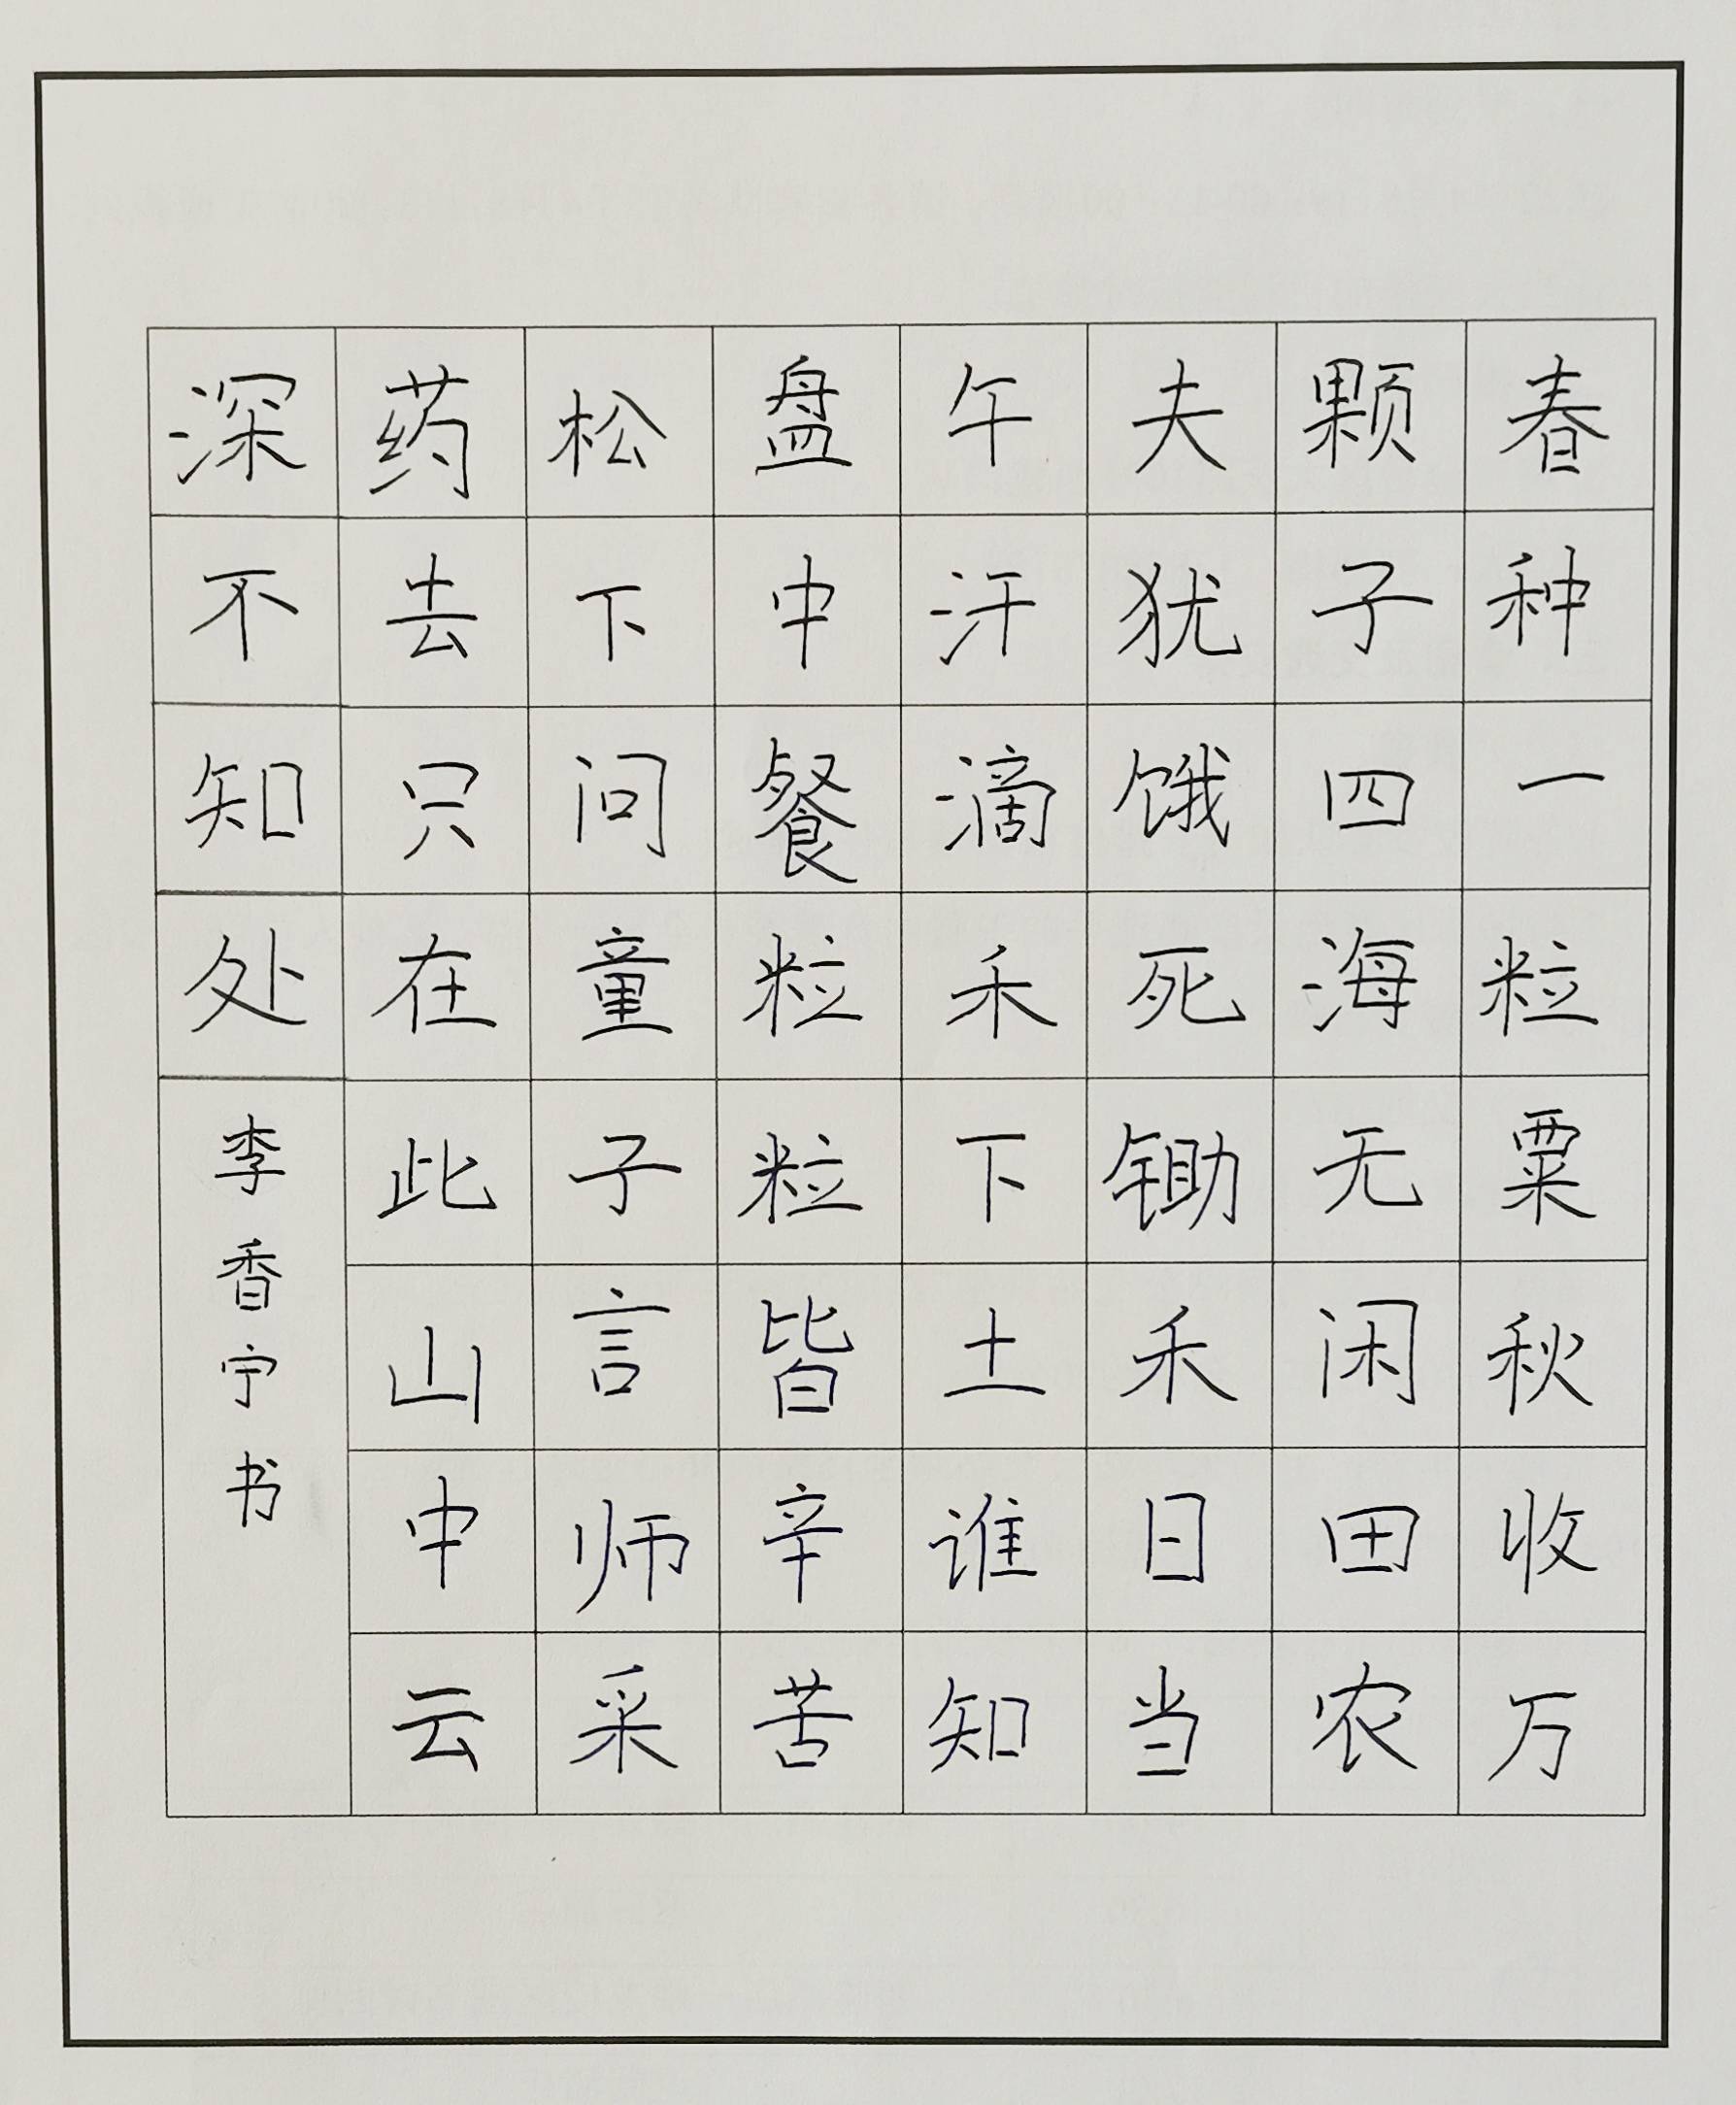 春种一粒粟秋收万
颗子四海无闲田农
夫犹饿死锄禾日当
午汗滴禾下土谁知
盘中餐粒粒皆辛苦
松下问童子言师采
药去只在此山中云
深不知处
李香宁书